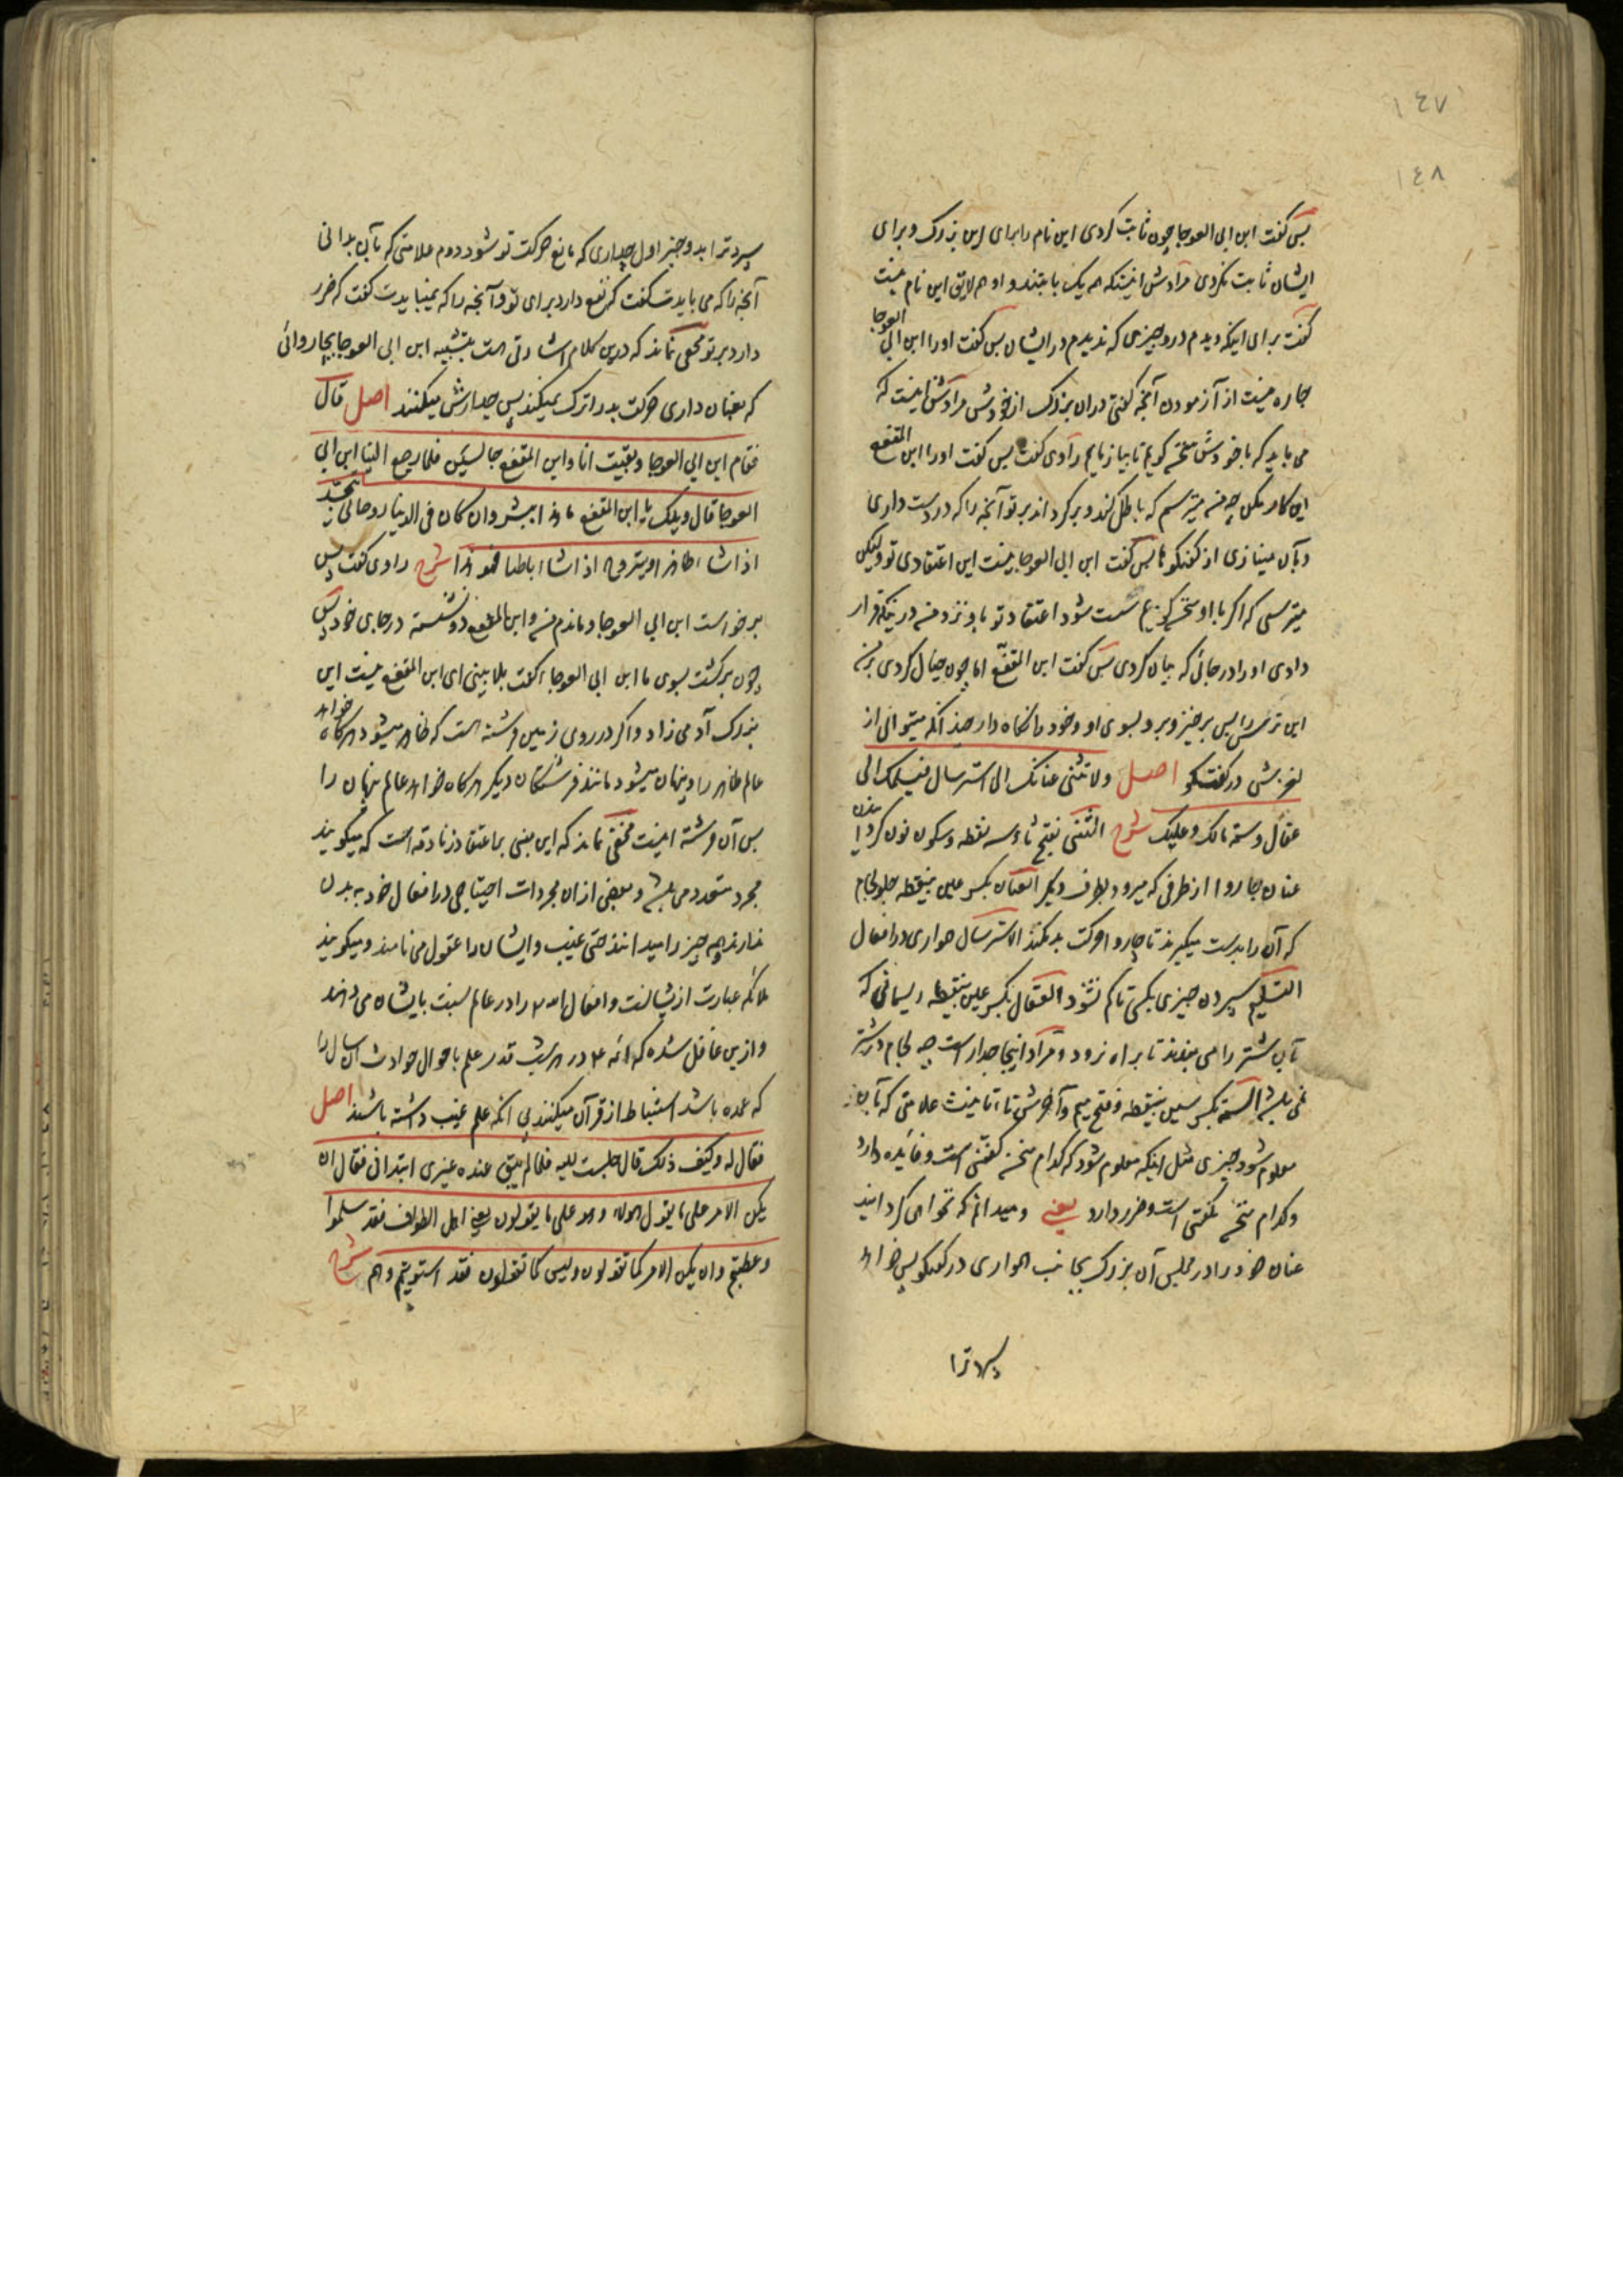 ١٤٧
١٤٨
پس گفت ابن ابی العوجا چون ثابت کردی این نام را برای این بزرک و برای
ایشان ثابت نکردی مرادش اینستکه همه یک بابتند و او هم لایق این نام نیست
گفت برای اینکه دیدم درو چیزی که ندیدم در ایشان پس گفت او را ابن ابی العوجا
چاره نیست از آزمودن آنچه گفتی دران بزرک از خودش مرادش اینست که
می باید که با خودش سخن گویم تا بیازمایم راوی گفت پس گفت او را ابن المقفع
این کار مکن چه من میترسم که باطل کند و برگرداند بر تو آنچه را که در دست داری
و بآن مینازی از گفتگوها پس گفت ابن ابی العوجا نیست این اعتقادی تو ولیکن
میترسی که اگر با او سخن گویم سست شود اعتقاد تو باو نزد من درینکه قرار
دادی او را در جائی که بیان کردی پس گفت ابن المقفّع اما چون خیال کردی بر من
این ترس را پس برخیز و برو بسوی او و خود را نگاه دار چندانکه میتوانی از
لغزش در گفتگو اصل ولا تثنی عنانک الی استرسال فیسلمک الی
عقال وسمه مالک وعلیک شرح الثنی بفتح ثاء سه نقطه و سکون نون گردانیدن
عنان چاروا از طرفی که میرود بطرف دیگر العنان بکسر عین بینقطه جلو لجام
که آن را بدست میگیرند تا چاروا حرکت بد نکند الاسترسال همواری در افعال
التسلیم سپردن چیزی بکسی تا کم نشود العقال بکسر عین بینقطه ریسمانی که
بآن شتر را می بندند تا براه نرود و مراد اینجا جدار است چه لجام در شتر
نمی باشد السمة بکسر سین بینقطه و فتح میم و آخرش تاء تانیث علامتی که بآن
معلوم شود چیزی مثل اینکه معلوم شود که کدام سخن گفتنی است و فایده دارد
و کدام سخن نگفتنی است و ضرر دارد یعنی و میدانم که نخواهی گردانید
عنان خود را در مجلس آن بزرک بجانب همواری در گفتگو پس خواهد
سپرد ترا
سپرد ترا بدو چیز اول جداری که مانع حرکت تو شود دوم علامتی که بآن بدانی
آنچه را که می بایدت گفت که نفع دارد برای تو و آنچه را که نمیبایدت گفت که ضرر
دارد بر تو مخفی نماند که درین کلام اشارتی است بتشبیه ابن ابی العوجا بچاروائی
که بعنان داری حرکت بد را ترک نمیکند پس جدارش میکنند اصل قال
فقام ابن ابی العوجا وبقیت انا وابن المقفع جالسین فلما رجع الینا ابن ابی
العوجا قال ویلک یا ابن المقفع ما هذا ببشر وان کان فی الدنیا روحانی یتجسّد
اذا شاء ظاهرا ویتروح اذا شاء باطنا فهو هذا شرح راوی گفت پس
برخواست ابن ابی العوجا و ماندم من و ابن المقفع دو نشسته در جای خود پس
چون برگشت بسوی ما ابن ابی العوجاء گفت بلا بینی ای ابن المقفع نیست این
بزرک آدمی زاد و اگر در روی زمین فرشته است که ظاهر میشود هرگاه خواهد
عالم ظاهر را و پنهان میشود مانند فرشتگان دیگر هرگاه خواهد عالم پنهان را
پس آن فرشته اینست مخفی نماند که این مبنی بر اعتقاد زنادقه است که میگویند
مجرد متعدد می باشد و بعضی ازان مجردات احتیاجی در افعال خود به بدن
ندارند و همه چیز را میدانند حتی غیب و ایشان را عقول می نامند و میگویند
ملائکه عبارت ازیشانست و افعال الله را در عالم نسبت بایشان می دهند
و ازین غافل شده که ائمه در هر شب قدر علم باحوال حوادث آن سال را
که عمده باشد استنباط از قرآن میکنند بی آنکه علم غیب داشته باشند اصل
فقال له وکیف ذلک قال جلست الیه فلما لم یبق عنده غیری ابتدانی فقال ان
یکن الامر علی ما یقول هولاء وهو علی ما یقولون یعنی اهل الطواف فقد سلموا
وعطبتم وان یکن الامر کما تقولون ولیس کما تقولون فقد استویتم وهم شرح